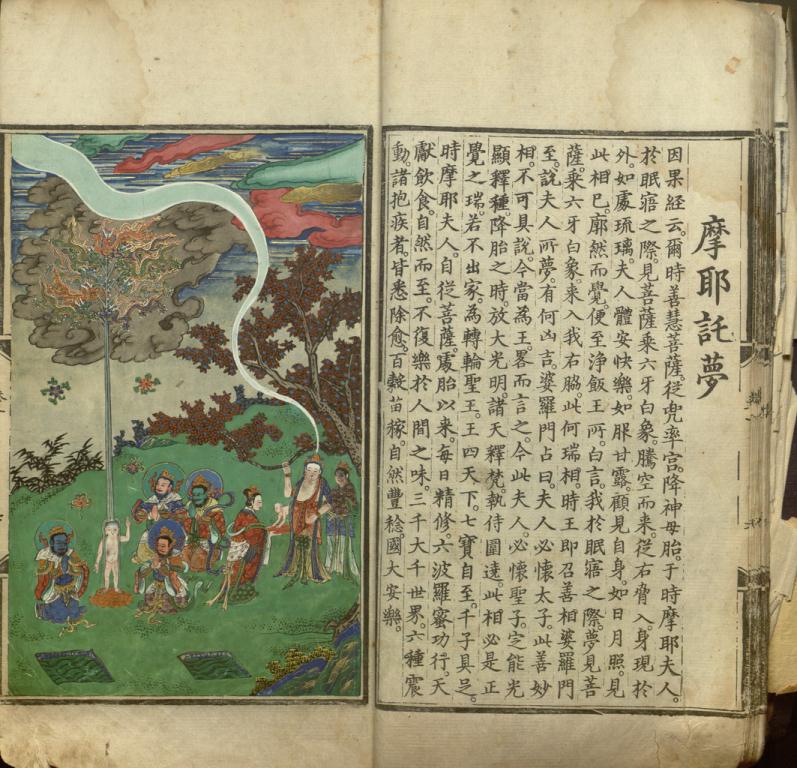 摩耶託夢
因果經云。爾時善慧菩薩。從兜率宮。降神母胎。于時摩耶夫人。
於眠寤之際。見菩薩乘六牙白象。騰空而來。從右脅入。身現於
外。如處琉璃。夫人體安快樂。如服甘露。顧見自身。如日月照。見
此相已。廓然而覺。便至淨飯王所。白言。我於眠寤之際。夢見菩
薩。乘六牙白象。來入我右脇。此何瑞相。時王即召善相婆羅門
至。說夫人所夢。有何凶吉。婆羅門占曰。夫人必懷太子。此善妙
相。不可具說。今當為王畧而言之。今此夫人。必懷聖子。定能光
顯釋種。降胎之時。放大光明。諸天釋梵。執侍圍遶。此相必是正
覺之瑞。若不出家。為轉輪聖王。王四天下。七寶自至。千子具足。
時摩耶夫人。自從菩薩。處胎以來。每日精修。六波羅蜜功行。天
獻飲食。自然而至。不復樂於人間之味。三千大千世界。六種震
動。諸抱疾者。皆悉除愈。百穀苗稼。自然豐稔。國大安樂。